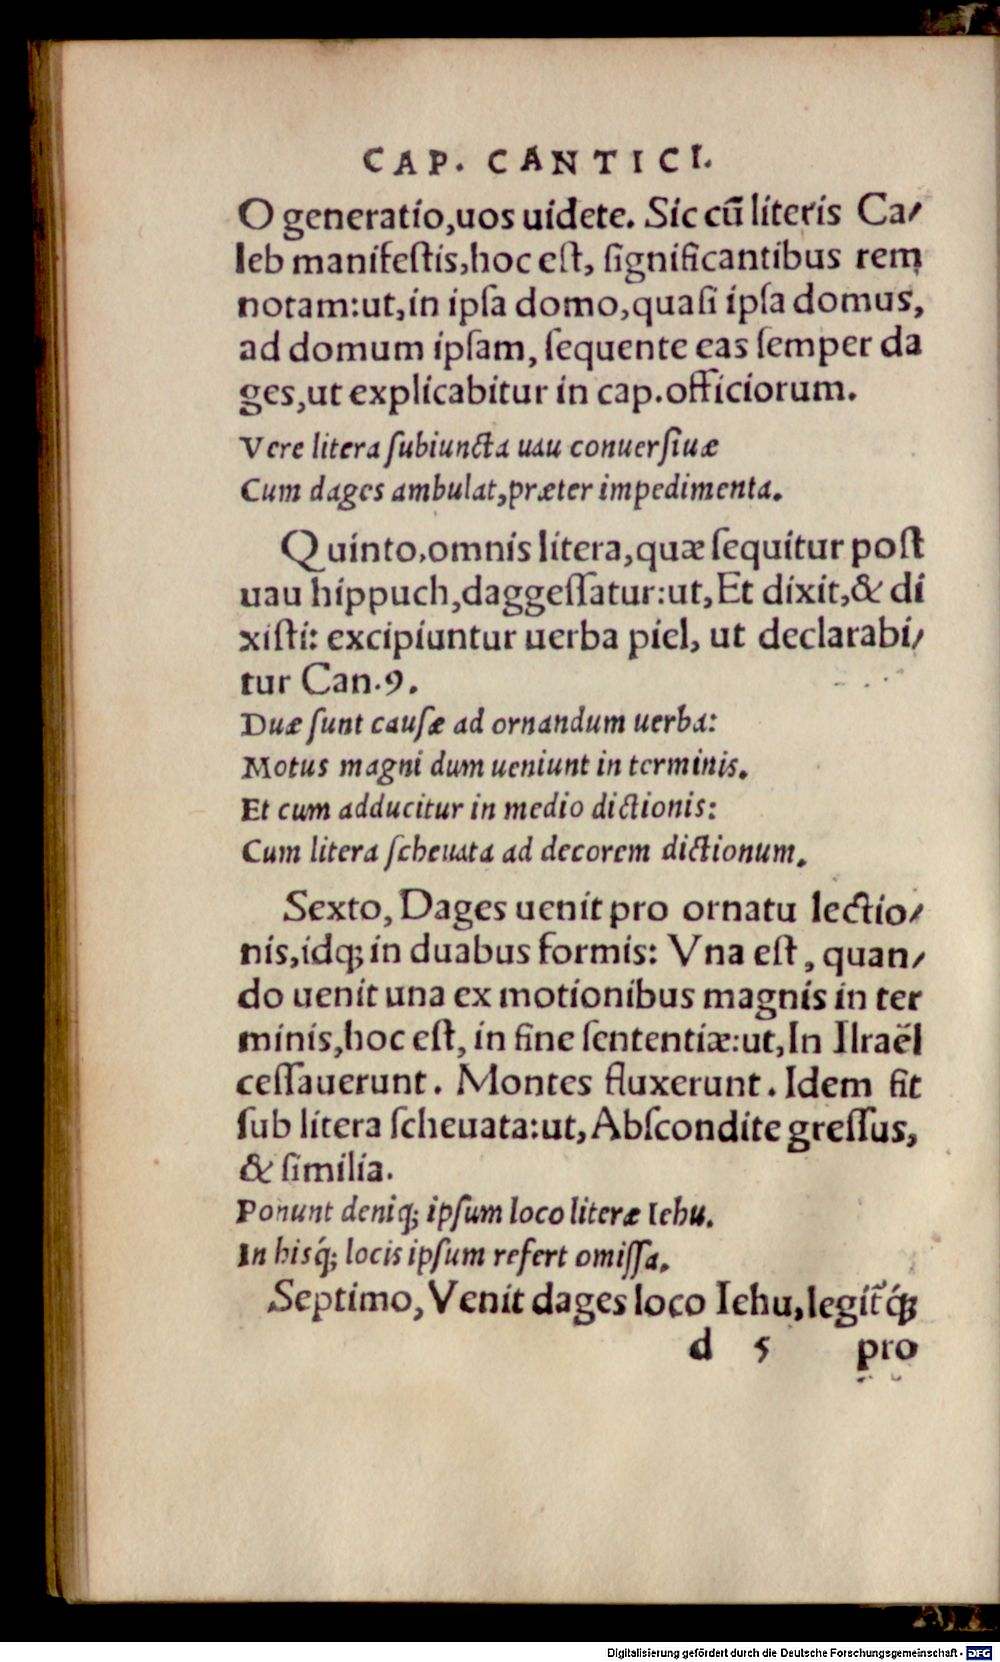 CAP. CANTICI.
O generatio,uos uidete. Sic cũ literis Ca/
leb manifeſtis,hoc eſt, ſignificantibus rem
notam:ut,in ipſa domo,quaſi ipſa domus,
ad domum ipſam, ſequente eas ſemper da
ges,ut explicabitur in cap.officiorum.
Vere litera ſubiuncta uau conuerſiuæ
Cum dages ambulat,præter impedimenta.
Quinto,omnis litera,quæ ſequitur poſt
uau hippuch,daggeſſatur:ut,Et dixit,& di
xiſti: excipiuntur uerba piel, ut declarabi/
tur Can.9.
Duæ ſunt cauſæ ad ornandum uerba:
Motus magni dum ueniunt in terminis.
Et cum adducitur in medio dictionis:
Cum litera ſcheuata ad decorem dictionum.
Sexto, Dages uenit pro ornatu lectio/
nis,idq; in duabus formis: Vna eſt, quan/
do uenit una ex motionibus magnis in ter
minis,hoc eſt, in fine ſententiæ:ut,In Iſraël
ceſſauerunt. Montes fluxerunt. Idem fit
ſub litera ſcheuata:ut,Abſcondite greſſus,
& ſimilia.
Ponunt deniq; ipſum loco literæ Iehu.
In hisq́; locis ipſum refert omiſſa.
Septimo, Venit dages loco Iehu,legit᷑q́;
d 5 pro
Digitalisierung gefördert durch die Deutsche Forschungsgemeinschaft - DFG